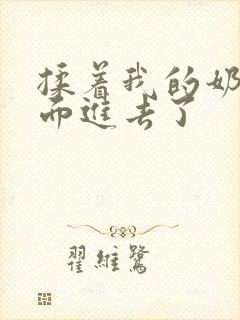 揉着我的奶
而进去了
翟維鷺